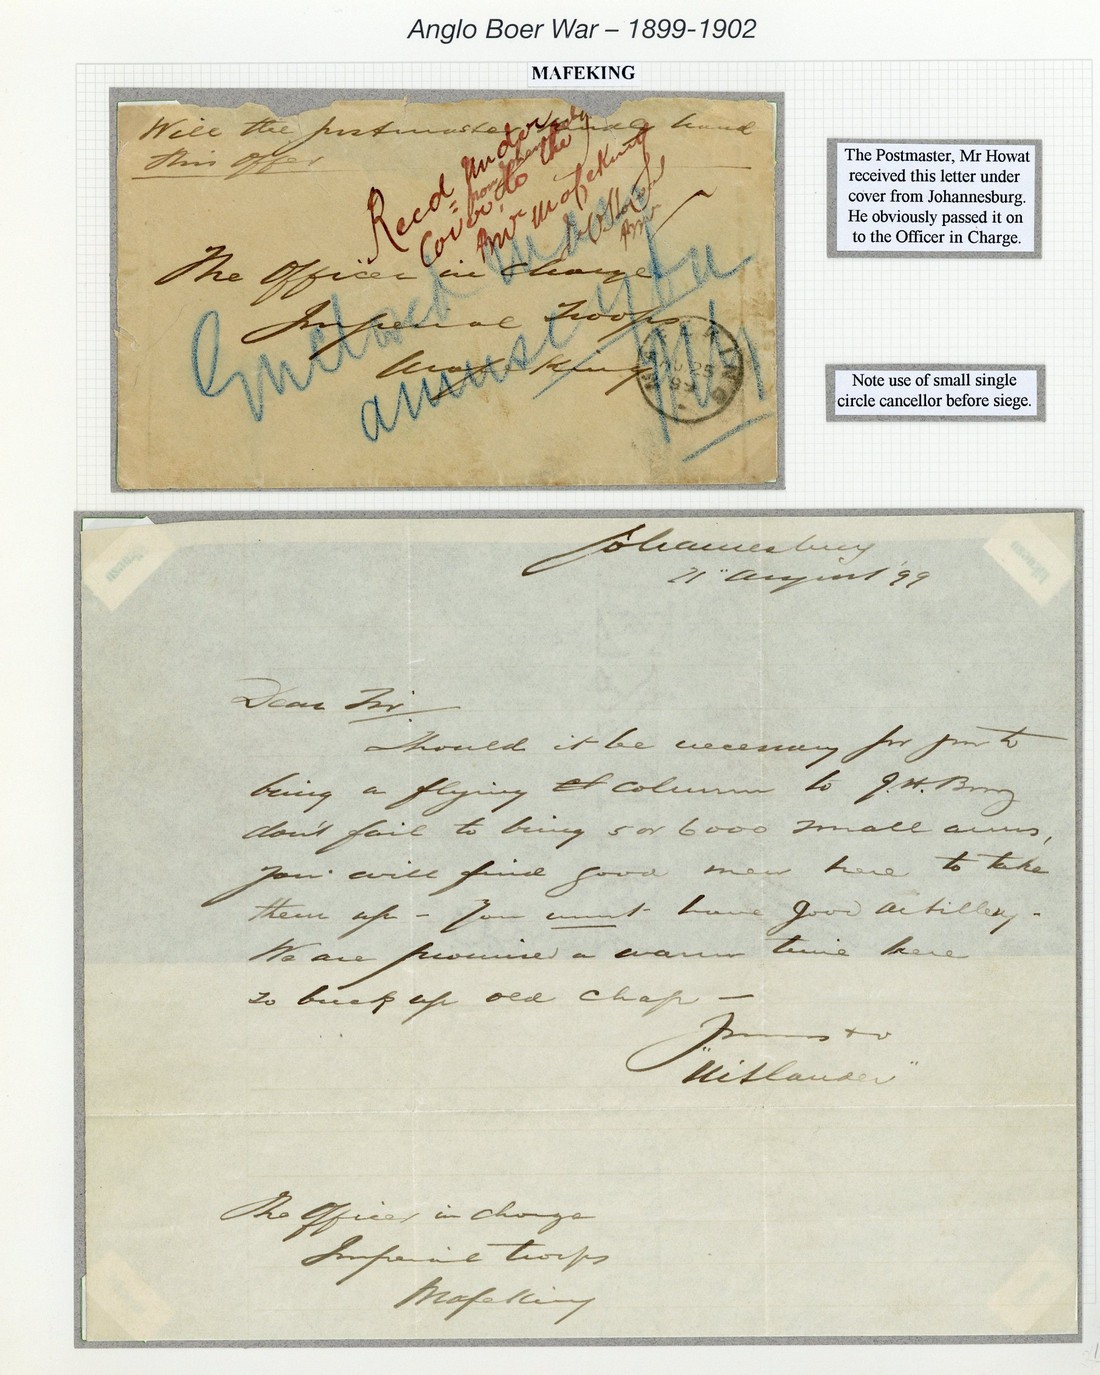 Anglo Boer War – 1899-1902
MAFEKING
Will the postmaster kindly hand
this Offer
Recd under
cover to the
from Johannesburg
Pmr Mafeking
J V Howat
Pmr
The Officer in Charge
Imperial Troops
Mafeking
Enclosed may
amuse you
AU 25
99
The Postmaster, Mr Howat
received this letter under
cover from Johannesburg.
He obviously passed it on
to the Officer in Charge.
Note use of small single
circle cancellor before siege.
Johannesburg
21st August '99
Dear Sir
Should it be necessary for you to
bring a flying column to J.H.Burg
don't fail to bring 5 or 6000 small arms,
you will find good men here to take
them up – You must have good artillery.
We are promised a warm time here
so buck up old chap –
Yours &c
"Uitlander"
The Officer in charge
Imperial troops
Mafeking